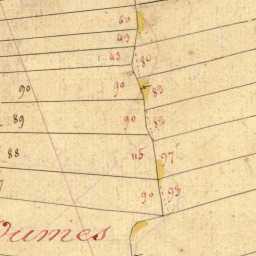 60
49
43 80
90 90 83
89 90 83
88 115 97
90 93
Dumes